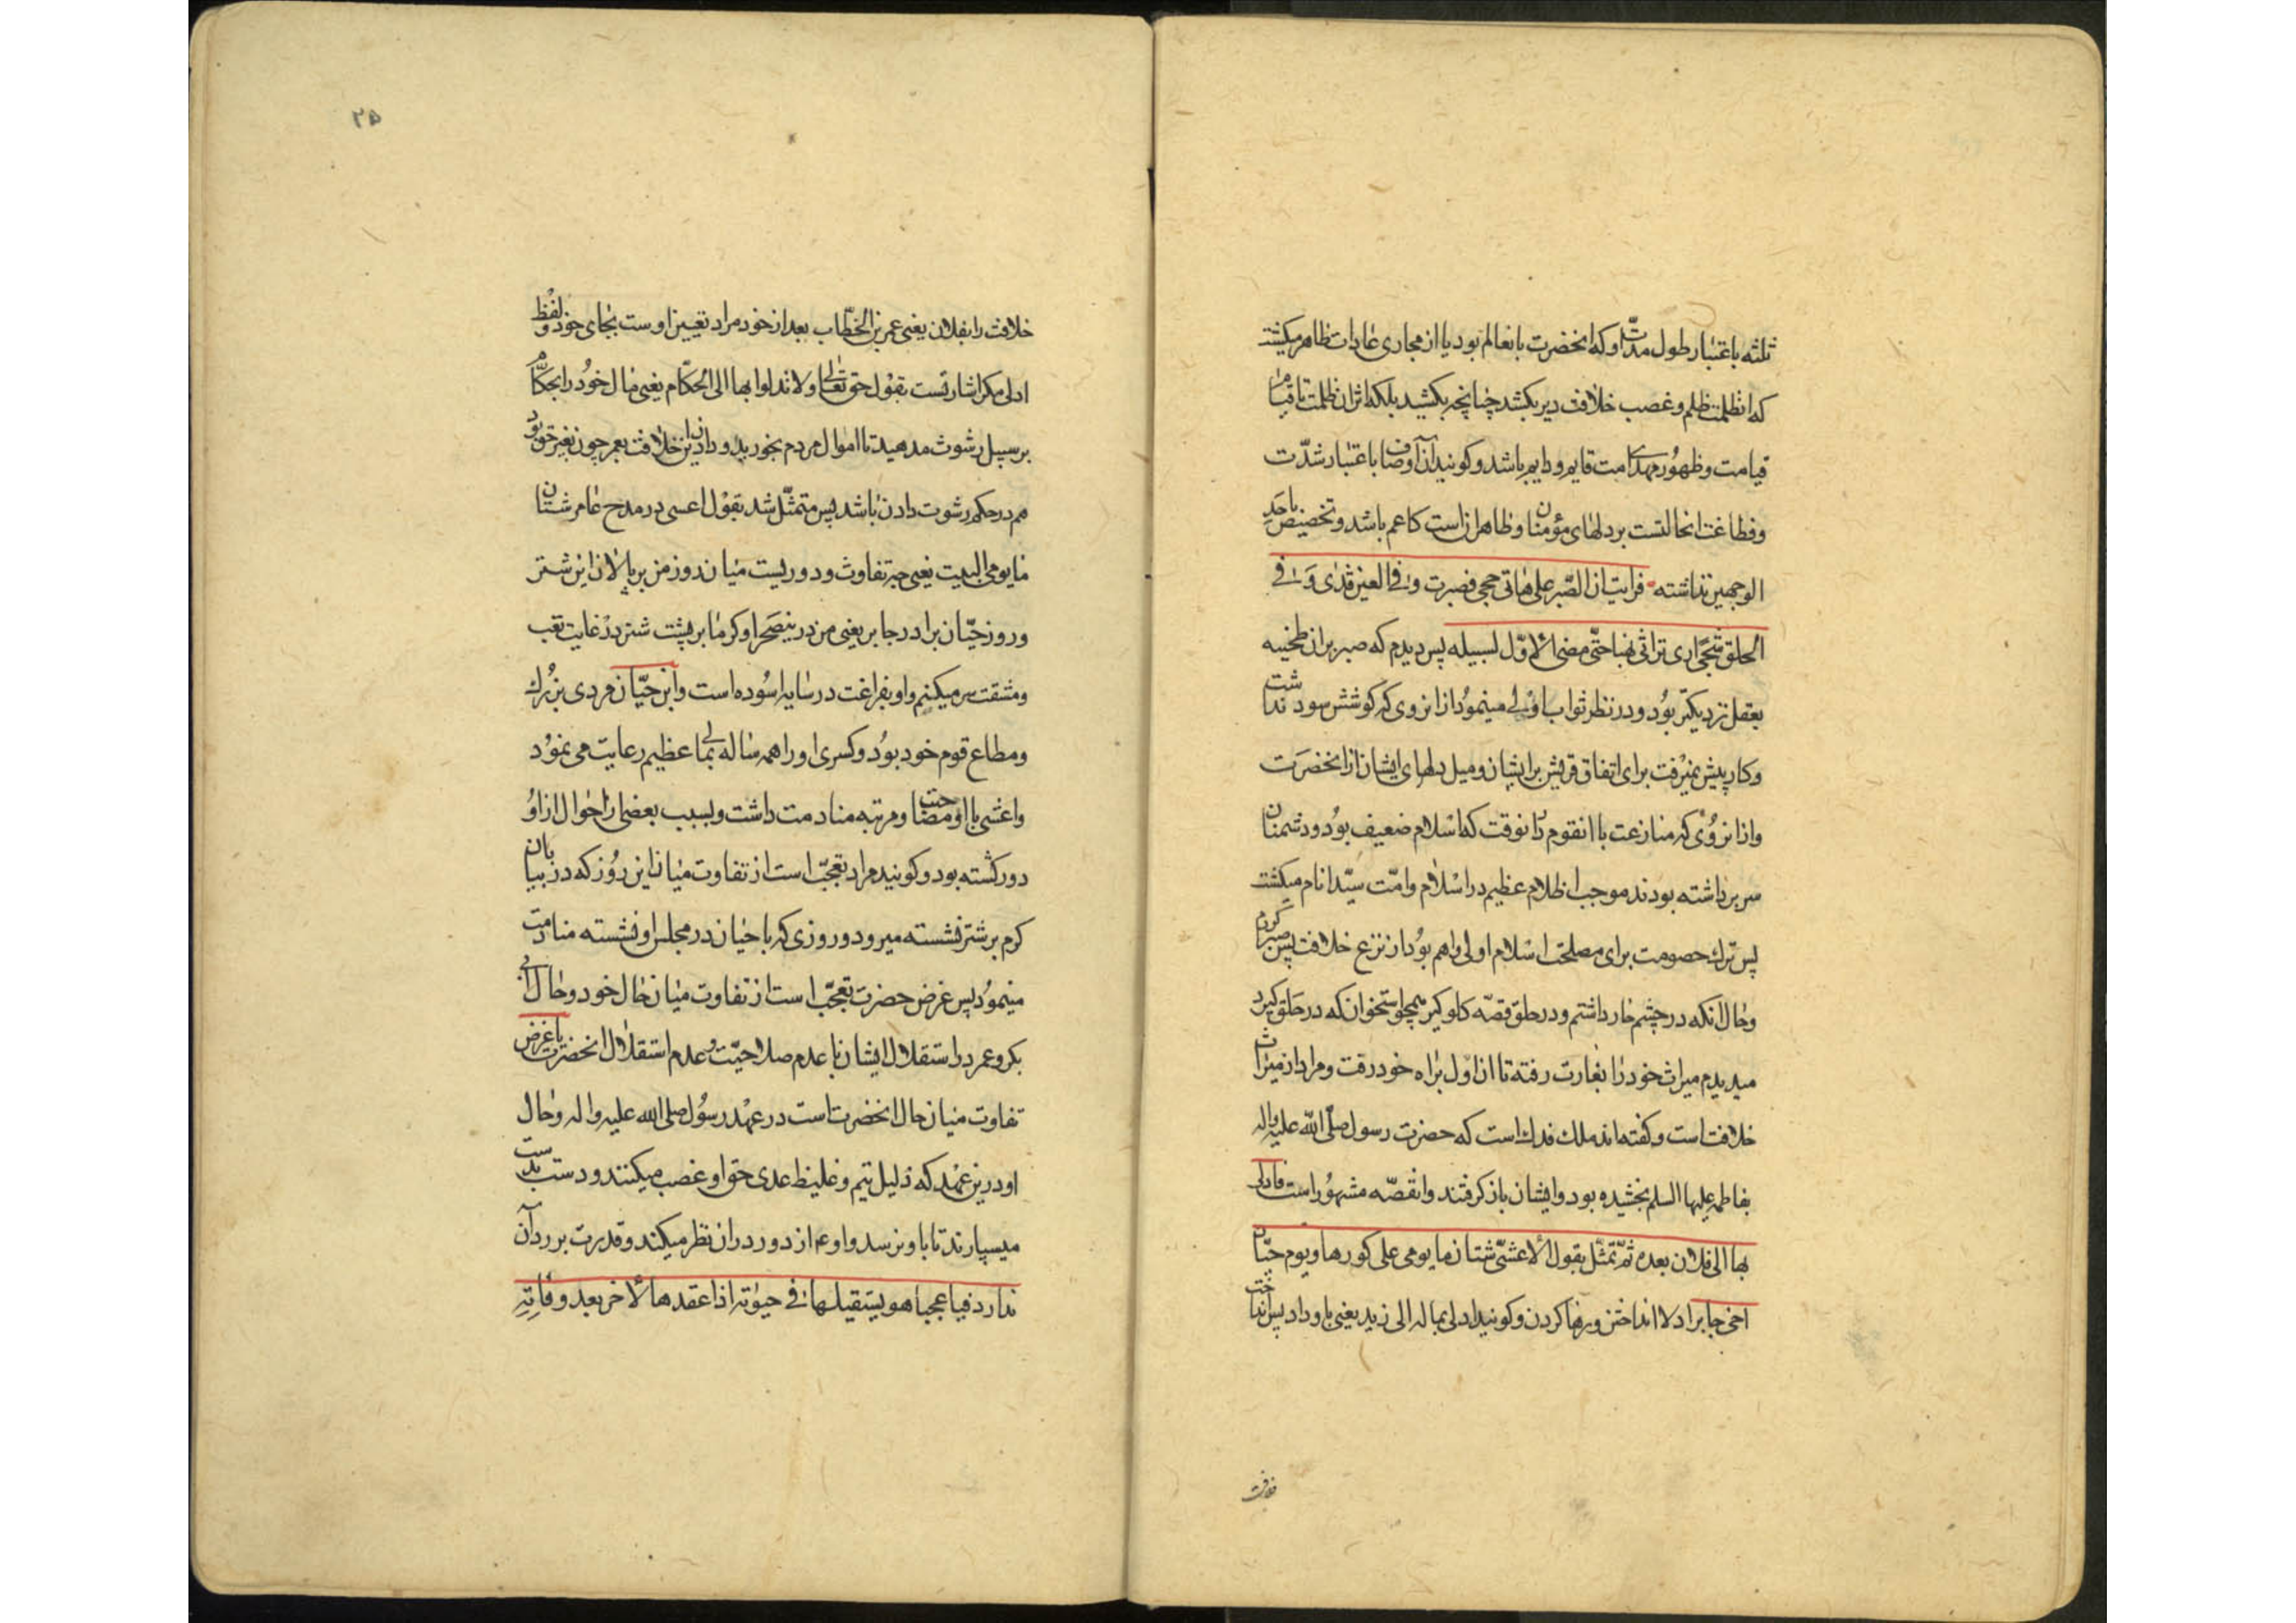 ثلثه باعتبار طول مدّت او که انحضرت بانعالم بود یا از مجاری عادات ظاهر میکشت
که انظلمت ظلم و غصب خلافت دیر بکشد چنانچه بکشید بلکه اثر ان ظلمت تا قیام
قیامت و ظهور مهدی امت قایم و دایم باشد و کویند آن اوصاف باعتبار شدّت
و فظاعت انحالتست بر دلهای مؤمنان و ظاهر انست که اعم باشد و تخصیص باحد
الوجهین نداشته فرایت ان الصّبر علی هاتی احجی فصبرت و فی العین قذی و فی
الحلق شجی اری تراثی نهبا حتّی مضی الاوّل لسبیله پس دیدم که صبر بر ان طخیه
بعقل نزدیکتر بود و در نظر ثواب اولی مینمود از انروی که کوشش سود نداشت
و کار پیش نمیرفت برای اتفاق قریش بر ایشان و میل دلهای ایشان از انحضرت
و از انروی که منازعت با انقوم تا انوقت که اسلام ضعیف بود و دشمنان
سر برداشته بودند موجب اظلام عظیم در اسلام و امّت سیّد انام میکشت
پس ترک حصومت برای مصلحت اسلام اولی و اهم بود از نزع خلافت پس صبر کردم
و حال آنکه در چشم خار داشتم و در حلق قصّه کلوکیر همچو استخوان که در حلق کیرد
میدیدم میراث خود را بغارت رفته تا ان اوّل براه خود رفت و مراد از میراث
خلافت است و کفته‌اند ملک فدک است که حضرت رسول صلّی الله علیه واله
بفاطمه علیها السلم بخشیده بود و ایشان باز کرفتند و انقصّه مشهور است فادلی
بها الی فلان بعده ثمّ تمثّل بقول الاعشی شتّان ما یومی علی کورها و یوم حیّان
اخی جابر ادلا انداختن و رها کردن و کویند ادلی بماله الی زید یعنی باو داد پس انداخت
خلافت
۲۵
خلافت را بفلان یعنی عمر بن الخطّاب بعد از خود مراد تعیین اوست بجای خود و لفظ
ادلی مکر اشارتست بقول حق تعالی و لا تدلوا بها الی الحکّام یعنی مال خود را بحکّام
بر سبیل رشوت مدهید تا اموال مردم بخورید و دادن این خلافت بعمر چون بغیر حق بود
هم در حکم رشوت دادن باشد پس متمثّل شد بقول اعسی در مدح عامر شتان
ما یومی البیت یعنی چه تفاوت و دوریست میان دو روز من بر پالان این شتر
و روز حیّان برادر جابر یعنی من در ینصحرا و کرما بر پشت شتر در غایت تعب
و مشقت سر میکنم و او بفراغت در سایه اسوده است و این حیّان مردی بزرک
و مطاع قوم خود بود و کسری او را همه ساله بمالی عظیم رعایت می نمود
و اعشی با او مصاحبت و مرتبه منادمت داشت و بسبب بعضی از احوال از او
دور کشته بود و کویند مراد تعجّب است از تفاوت میان این روز که در بیابان
کرم بر شتر نشسته میرود و روزی که با حیان در مجلس او نشسته منادمت
مینمود پس غرض حضرت تعجّب است از تفاوت میان حال خود و حال ابی
بکر و عمر در استقلال ایشان با عدم صلاحیّت و عدم استقلال انحضرت یا غرض
تفاوت میان حال انحضرت است در عهد رسول صلی الله علیه واله و حال
او در ین عهد که ذلیل تیم و غلیظ عدی حق او غصب میکنند و دست بدست
میسپارند تا باو نرسد و او ع از دور در ان نظر میکند و قدرت بر رد آن
ندارد فیا عجبا هو یستقیلها فی حیوته اذا عقدها لاخر بعد وفاته